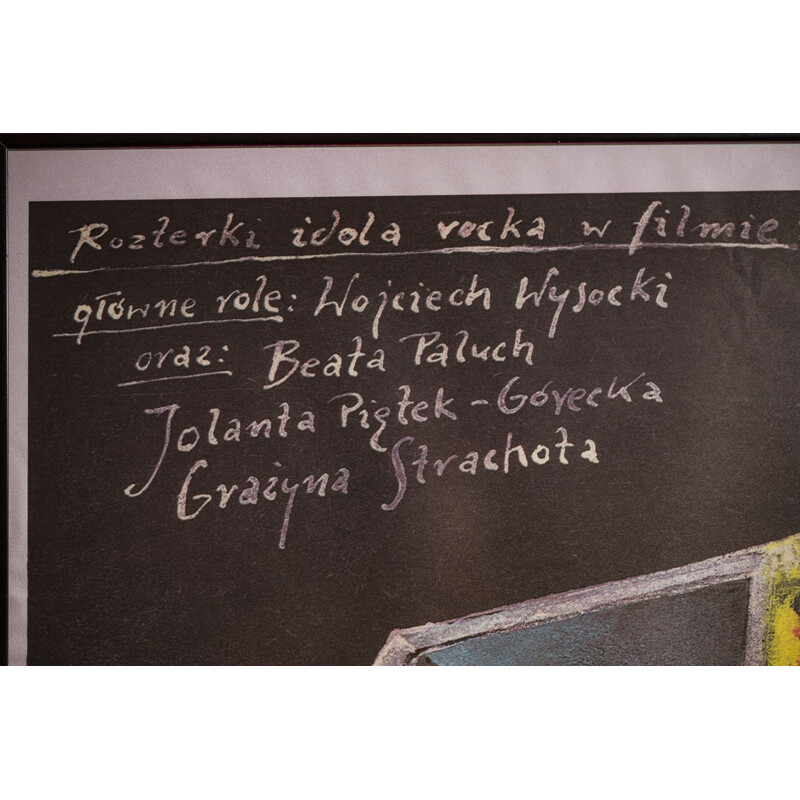 Rozterki idola rocka w filmie
główne role: Wojciech Wysocki
oraz: Beata Paluch
Jolanta Piętek-Górecka
Grażyna Strachota